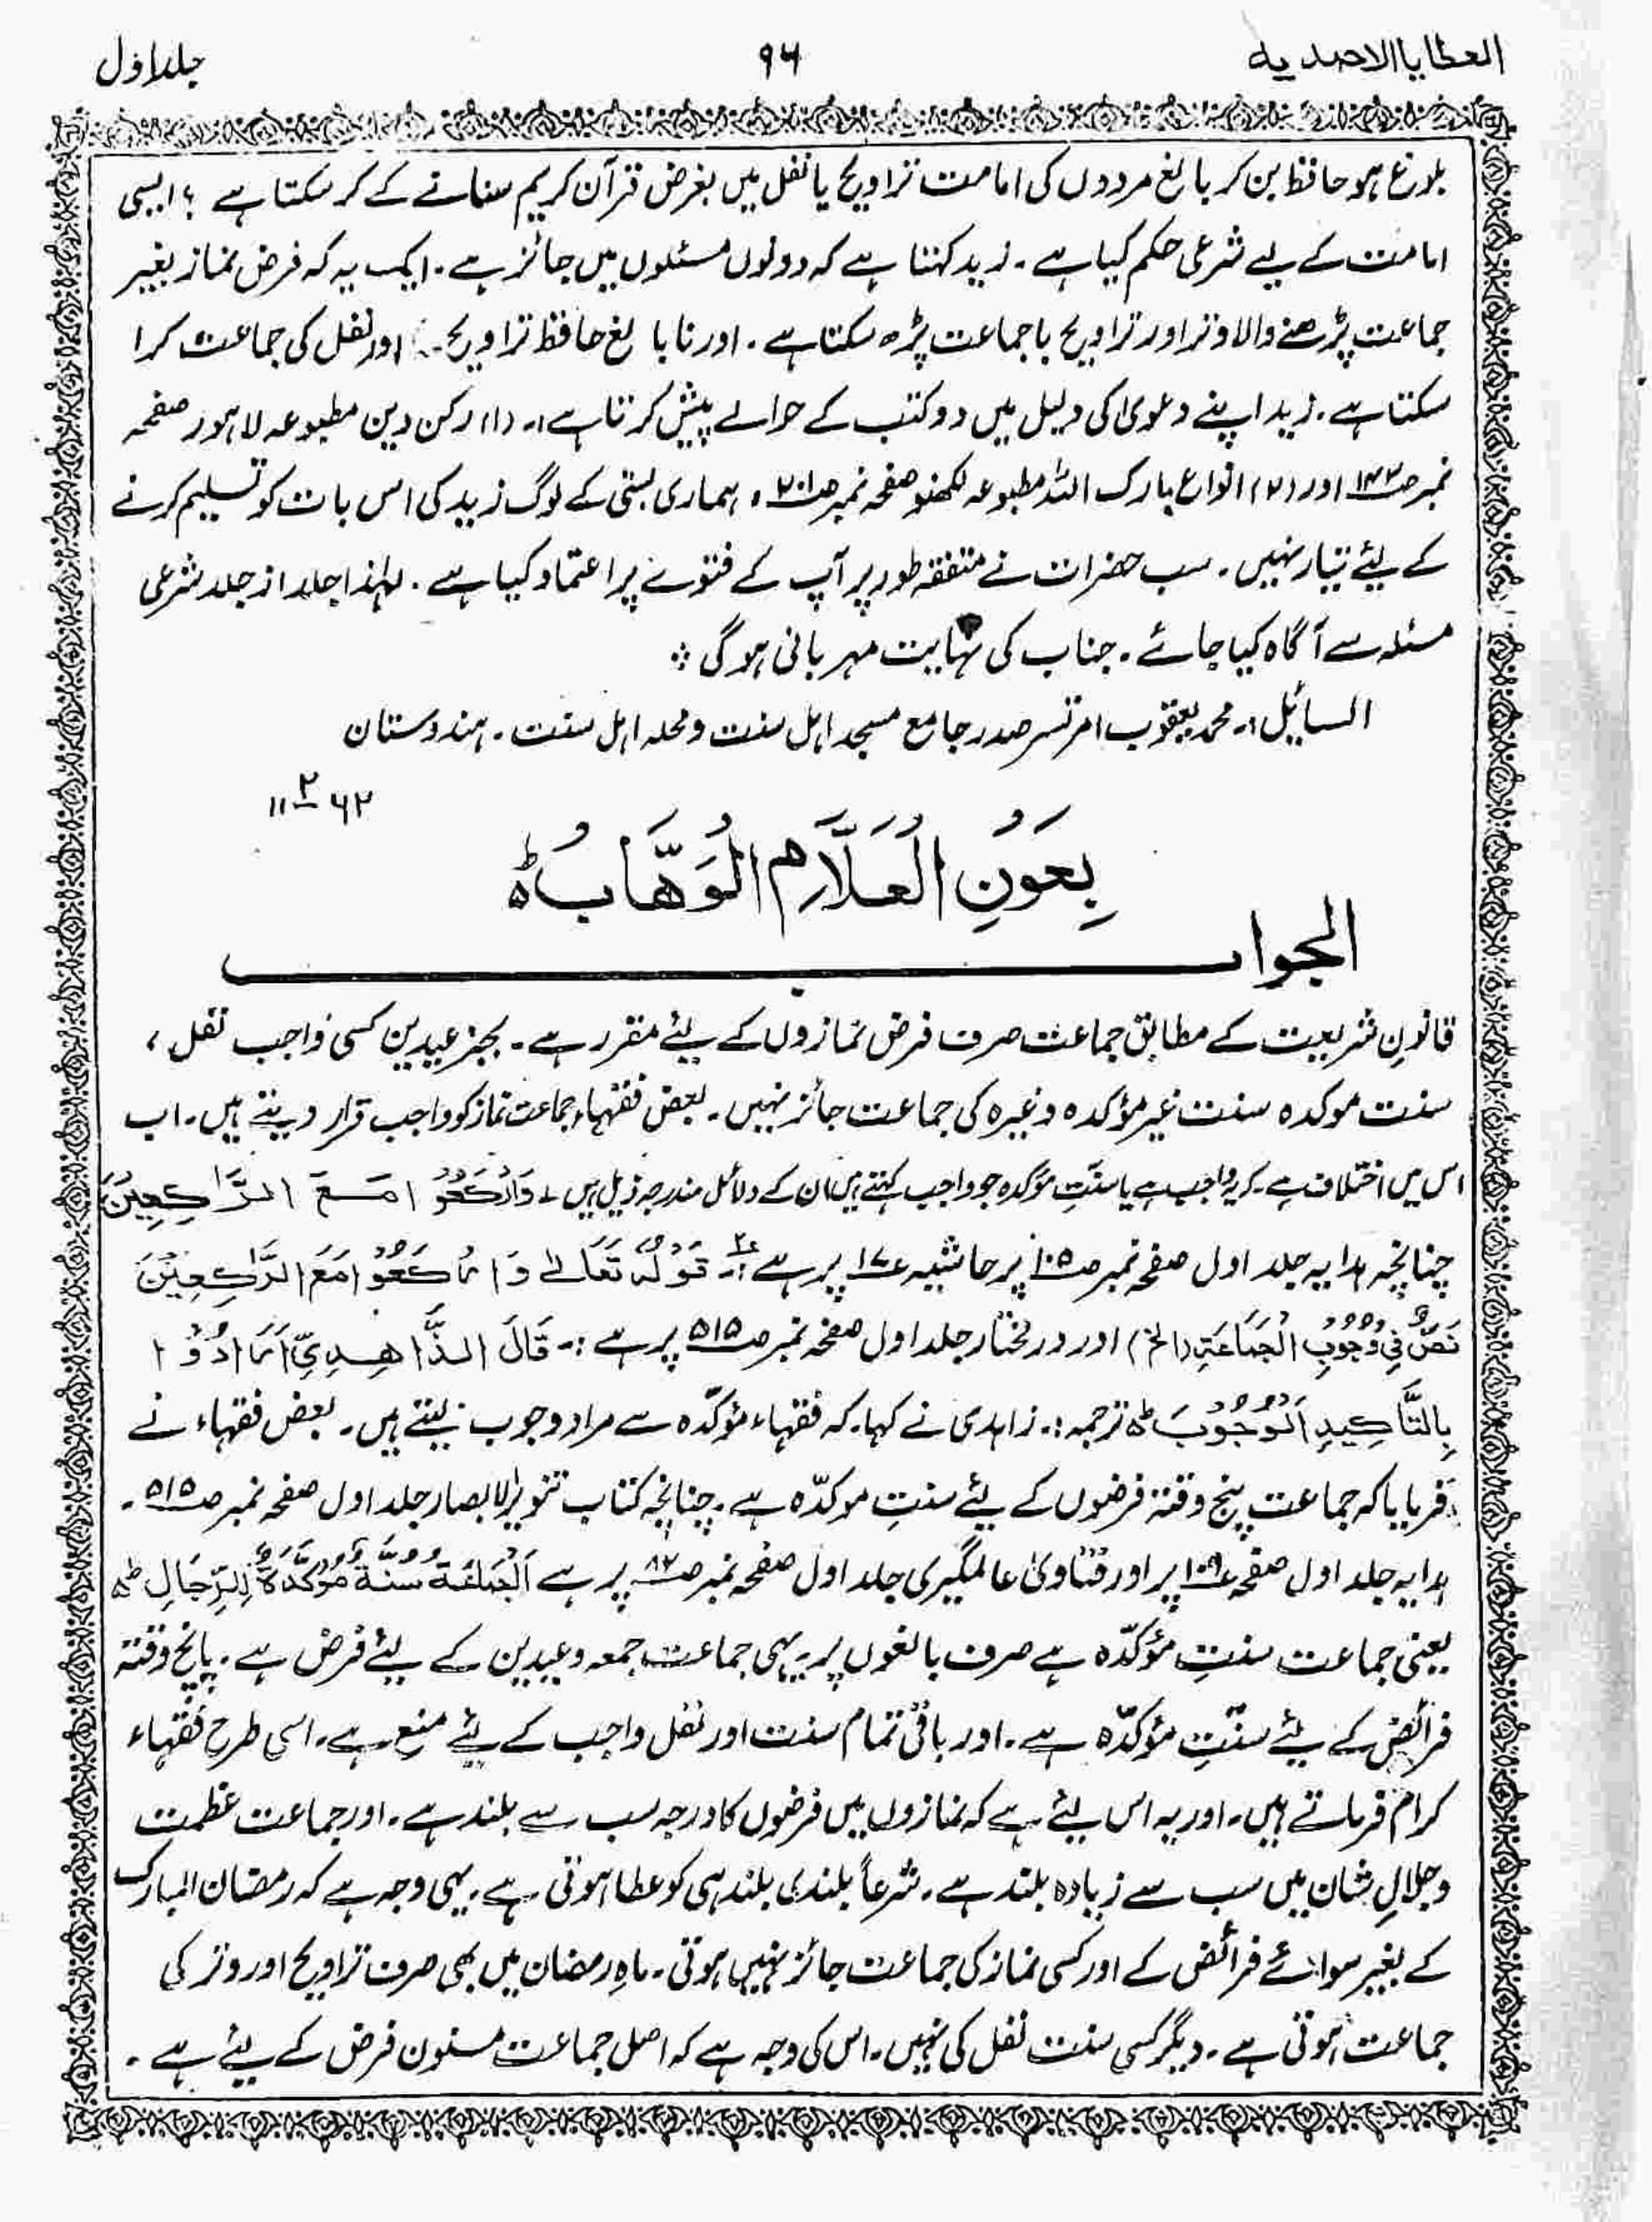 العطایا الاحمدیہ ۹۶ جلد اول
بلوغ ہو حافظ بن کر بالغ مردوں کی امامت تراویح یا نفل میں بغرض قرآن کریم سنانے کے کر سکتا ہے ؟ ایسی
امامت کے لیے شرعی حکم کیا ہے ۔ زید کہتا ہے کہ دونوں مسئلوں میں جائز ہے ۔ ایک یہ کہ فرض نماز بغیر
جماعت پڑھنے والا وتر اور تراویح با جماعت پڑھ سکتا ہے ۔ اور نابالغ حافظ تراویح اور نفل کی جماعت کرا
سکتا ہے ۔ زید اپنے دعویٰ کی دلیل میں دو کتب کے حوالے پیش کرتا ہے :۔ (۱) رکن دین مطبوعہ لاہور صفحہ
نمبر ص۱۳۲ اور (۲) انواع بارک اللہ مطبوعہ لکھنو صفحہ نمبر ص۲۰۱ ۔ ہماری بستی کے لوگ زید کی اس بات کو تسلیم کرنے
کے لیئے تیار نہیں ۔ سب حضرات نے متفقہ طور پر آپ کے فتوے پر اعتماد کیا ہے ۔ لہٰذا جلد از جلد شرعی
مسئلہ سے آگاہ کیا جائے ۔ جناب کی نہایت مہربانی ہو گی ؞
السائیل :۔ محمد یعقوب امرتسر صدر جامع مسجد اہل سنت و محلہ اہل سنت ۔ ہندوستان
۱۱ ۲ ۶۲
بِعَوْنِ الْعَلَّامِ الْوَھَّابِ ؕ
الجواب
قانونِ شریعت کے مطابق جماعت صرف فرض نمازوں کے لیئے مقرر ہے ۔ بجز عیدین کسی واجب نفل ،
سنت موکدہ سنت غیر مؤکدہ وغیرہ کی جماعت جائز نہیں ۔ بعض فقہاء جماعت نماز کو واجب قرار دیتے ہیں ۔ اب
اس میں اختلاف ہے ۔ کہ یہ واجب ہے یا سنّتِ مؤکدہ جو واجب کہتے ہیں ان کے دلائل مندرجہ ذیل ہیں ۔ وَارْکَعُوْا مَعَ الرَّاکِعِیْنَ
چنانچہ ہدایہ جلد اول صفحہ نمبر ص۱۰۵ پر حاشیہ ۱۷ پر ہے :۔ قَوْلُہٗ تَعَالٰی وَارْکَعُوْا مَعَ الرَّاکِعِیْنَ
نَصٌّ فِیْ وُجُوْبِ الْجَمَاعَۃِ (الخ) اور درمختار جلد اول صفحہ نمبر ص۵۱۵ پر ہے :۔ قَالَ الزَّاھِدِیُّ اَرَادُوْا
بِالتَّاکِیْدِ اَلْوُجُوْبَ ؕ ترجمہ :۔ زاہدی نے کہا ۔ کہ فقہاء مؤکدّہ سے مراد وجوب لیتے ہیں ۔ بعض فقہاء نے
فرمایا کہ جماعت پنج وقتہ فرضوں کے لیئے سنتِ موکدّہ ہے ۔ چنانچہ کتاب تنویرالابصار جلد اول صفحہ نمبر ص۵۱۵ ۔
ہدایہ جلد اول صفحہ پر اور فتاویٰ عالمگیری جلد اول صفحہ نمبر ص۸۲ پر ہے اَلْجَمَاعَۃُ سُنَّۃٌ مُؤَکَّدَۃٌ لِلرِّجَالِ ؕ
یعنی جماعت سنتِ مؤکدّہ ہے صرف بالغوں پر ۔ یہی جماعت جمعہ و عیدین کے لیئے فرض ہے ۔ پانچ وقتہ
فرائض کے لیئے سنّتِ مؤکدّہ ہے ۔ اور باقی تمام سنت اور نفل واجب کے لیئے منع ہے ۔ اسی طرح فقہاء
کرام فرماتے ہیں ۔ اور یہ اس لیئے ہے کہ نمازوں میں فرضوں کا درجہ سب سے بلند ہے ۔ اور جماعت عظمت
و جلالِ شان میں سب سے زیادہ بلند ہے ۔ شرعاً بلندی بلند ہی کو عطا ہوتی ہے ۔ یہی وجہ ہے کہ رمضان المبارک
کے بغیر سوائے فرائض کے اور کسی نماز کی جماعت جائز نہیں ہوتی ۔ ماہِ رمضان میں بھی صرف تراویح اور وتر کی
جماعت ہوتی ہے ۔ دیگر کسی سنت نفل کی نہیں ۔ اس کی وجہ ہے کہ اصل جماعت مسنون فرض کے لیئے ہے ۔